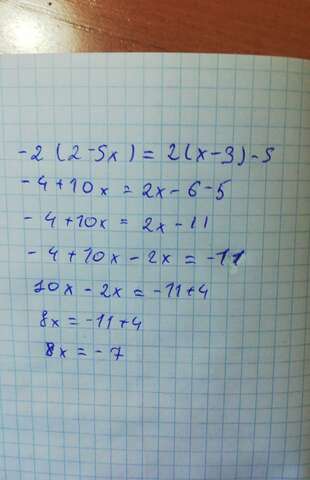 -2(2-5x)=2(x-3)-5
-4+10x=2x-6-5
-4+10x=2x-11
-4+10x-2x=-11
10x-2x=-11+4
8x=-11+4
8x=-7